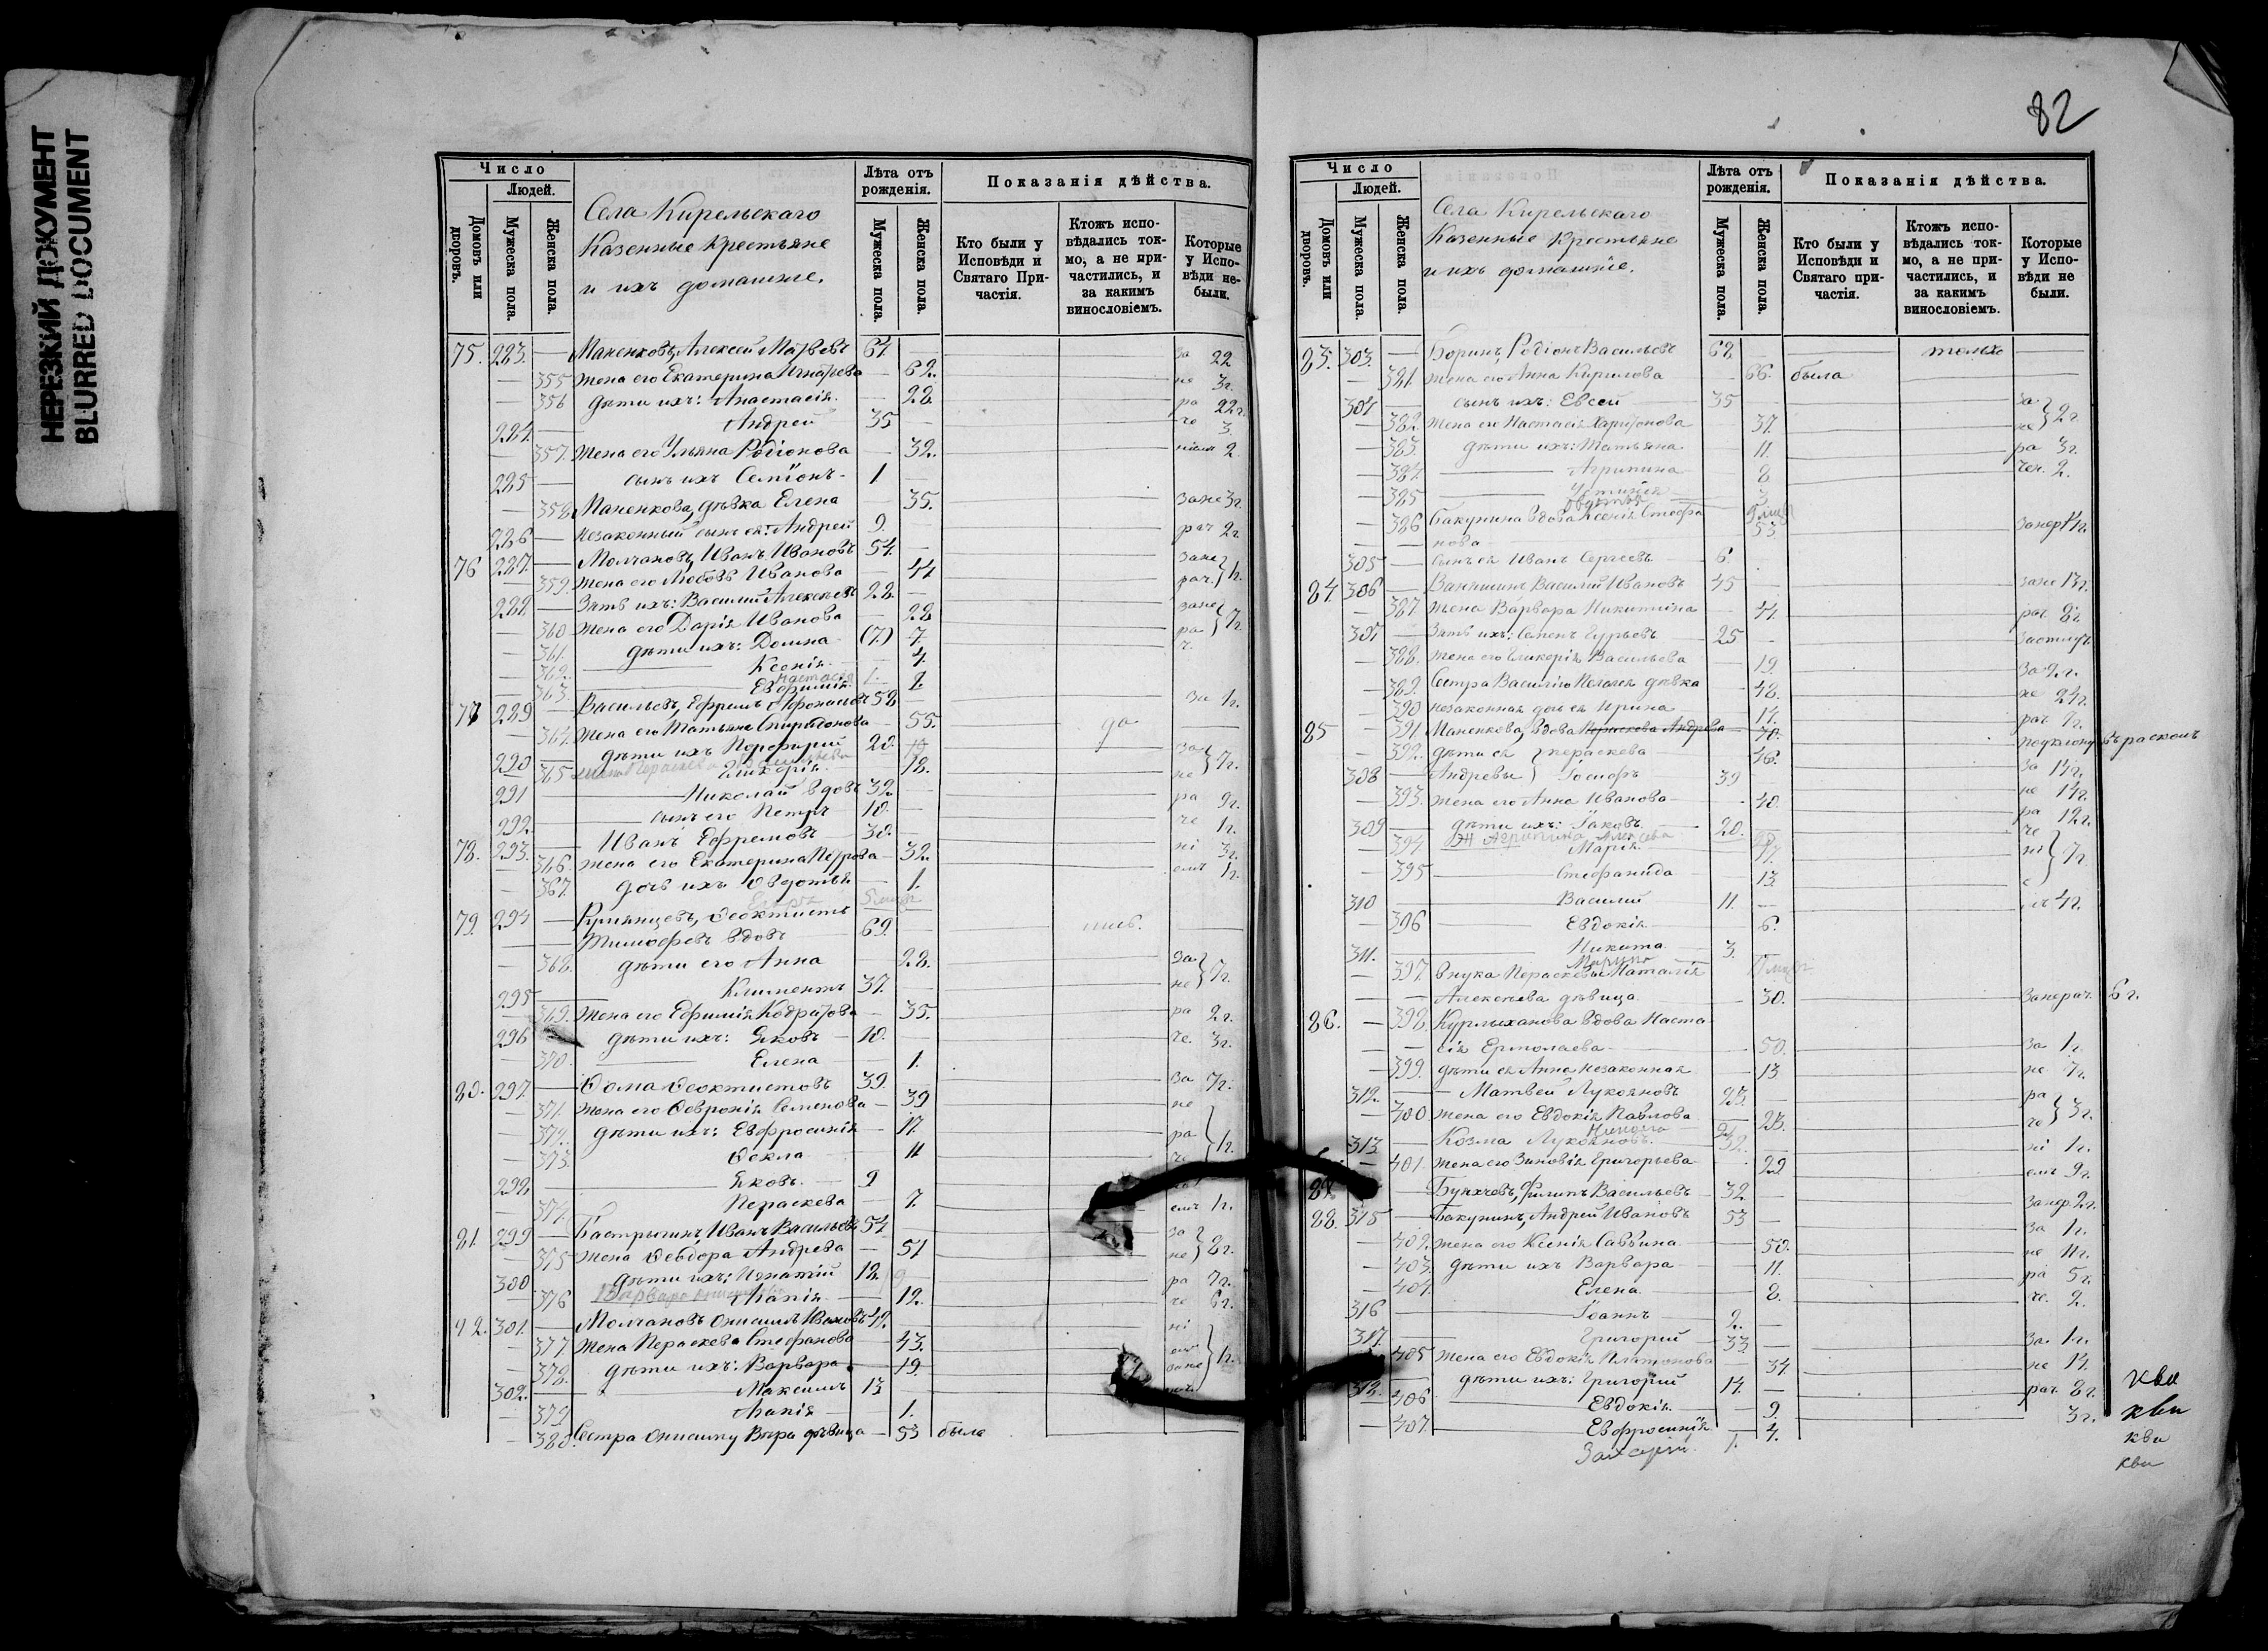 НЕРЕЗКИЙ ДОКУМЕНТ
BLURRED DOCUMENT
Число
Людей.
Домовъ или дворовъ.
Мужеска пола.
Женска пола.
Села Кирельскаго
Казенные крестьяне
и ихъ домашніе.
Лѣта отъ рожденія.
Мужеска пола.
Женска пола.
Показанія дѣйства.
Кто были у Исповѣди и Святаго Причастія.
Ктожъ исповѣдались токмо, а не причастились, и за какимъ винословіемъ.
Которые у Исповѣди небыли.
75. 223. — Маненковъ, Алексей Матвѣевъ 64 — за 22
— 355 жена его Екатерина Игнатьева — 62. не 3г.
— 356 дѣти ихъ: Анастасія — 28. ра 22г.
224. — Андрей 35 — че 3
— 357. жена его Ульяна Родіонова — 32. 2
225 — сынъ ихъ Семіонъ 1
— 358. Маненкова, дѣвка Елена — 35. зане 3г.
226 — незаконный сынъ ея: Андрей 9. рач 2г.
76 227. — Молчановъ, Иванъ Ивановъ 54. — зане
— 359. жена его Любовь Иванова — 44 рач. 1г.
228 — Зять ихъ: Василій Алексѣевъ 28. — зане
— 360. жена его Дарія Иванова — 28 ра 7г.
— 361. дѣти ихъ: Домна (7) 7. ч.
— 362. Ксенія — 4.
Настасія 1.
— 363. Евфимія 2.
77 229 — Васильевъ, Ефремъ Афонасьевъ 58 за 1г.
— 364. жена его Татьяна Спиридонова — 55. да
290 — дѣти ихъ Порфирій 20. за
— 365 Гликерія — 18. не 7г.
291 — Николай вдовъ 32.
292. — сынъ его Петръ 10. ра 9г.
78. 293. — Иванъ Ефремовъ 30. че 1г.
— 366. жена его Екатерина Петрова — 32. ні 3г.
— 367. дочь ихъ Овдотья — 1. емъ 1г.
79. 294 — Румянцевъ, Ѳеоктистъ
Тимофеевъ вдовъ 69.
— 368. дѣти его Анна — 28. за
295 — Климентъ 37. не 7г.
— 369. жена его Ефимія Кодратова — 35. ра 2г.
296 — дѣти ихъ: Яковъ 10. че. 3г.
— 370. Елена — 1.
80. 297. — Ѳома Ѳеоктистовъ 39. за 7г.
— 371. жена его Ѳевронія Семенова — 39 не
— 372. дѣти ихъ: Евфросинія — 17. ра 1г.
— 373. Ѳекла — 11 че
298 — Яковъ 9
— 374. Пераскева — 7. емъ 1г.
81. 299 — Бастрыгинъ, Иванъ Васильевъ 54 за
— 375 жена Ѳеодора Андрева — 51 не 8г.
300 — дѣти ихъ: Игнатій 18. ра 7г.
Варвара
— 376 Марія — 12. че 6г.
301. — Молчановъ Онисимъ Ивановъ 42. ні
— 377. жена Пераскева Стефанова — 43.
— 378. дѣти ихъ: Варвара — 19. зане 1г.
302. — Максимъ 13
— 379. Марія — 1.
— 380. Сестра Онисиму Вѣра дѣвица — 53 была
82
Число
Людей.
Домовъ или дворовъ.
Мужеска пола.
Женска пола.
Села Кирельскаго
Казенные крестьяне
и ихъ домашніе.
Лѣта отъ рожденія.
Мужеска пола.
Женска пола.
Показанія дѣйства.
Кто были у Исповѣди и Святаго причастія.
Ктожъ исповѣдались токмо, а не причастились, и за какимъ винословіемъ.
Которые у Исповѣди не были.
83. 303. — Боринъ, Родіонъ Васильевъ 68 — только
— 381. жена его Анна Кирилова — 66. была
304 — сынъ ихъ: Евсей 35 — за
— 382. жена его Настасія Харитонова — 37. не 2г.
— 383. дѣти ихъ: Татьяна — 11. ра 3г.
— 384. Агрипина — 8 чен. 2.
— 385 Устинія 3
Овдотья
— 386 Бакунина вдова Ксенія Стефа
нова 53 занер 14г.
305 — сынъ ея Иванъ Сергеевъ 6.
84. 306 — Ванюшинъ Василій Ивановъ 45 — зане 13г.
— 387. жена Варвара Никитина — 44. рач. 8г.
307 — Зять ихъ: Семенъ Гурьевъ 25 —
— 388. жена его Гликерія Васильева — 19.
— 389. Сестра Василію Пелагея дѣвка — 48. за 2г.
— 390 незаконная дочь ея Ирина — 14. не 24г.
85 — 391 Маненкова, вдова Пераскева Андрева 70. рач 7г.
— 392. дѣти ея Пераскева — 46. по уклону въ расколъ
308 — Андревы Іосифъ 39 за 14г.
— 393. жена его Анна Иванова — 40. не 14г.
309 — дѣти ихъ: Іаковъ 20. ра 12г.
Агрипина Алексева
— 394 Марія 17. че
— 395 Стефанида — 13. ні 7г.
310 — Василій 11. — 4г.
— 396 Евдокія — 6.
311. — Никита 3.
— 397. внука Пераскевы Наталія
Алексѣева дѣвица — 30. занерач. 6г.
86. — 398. Курлыханова вдова Наста
сія Ермолаева — 50. за 1г.
— 399. дѣти ея Анна незаконная — 13 не 7г.
312. — Матвей Лукояновъ 25. — ра
— 400 жена его Евдокія Павлова — 23. че 3г.
313 — Козма Лукояновъ 32. ні 1г.
— 401. жена его Зиновія Григорьева — 29 емъ 9г.
Бункчевъ, Филипъ Васильевъ 32. занер. 2г.
88. 315 — Бакунинъ, Андрей Ивановъ 53 — за 1г.
— 402. жена его Ксенія Саввина — 50. не 11г.
— 403. дѣти ихъ Варвара — 11. ра 5г.
— 404. Елена — 8. че. 2.
316 — Іоаннъ 2. —
317. — Григорій 33. за. 1г.
405 жена его Евдокія Платонова — 34. не 14.
318. — дѣти ихъ: Григорій 14. рач. 8г.
— 406 Евдокія — 9. 3г.
— 407. Евфросинія — 4.
Захарій 1.